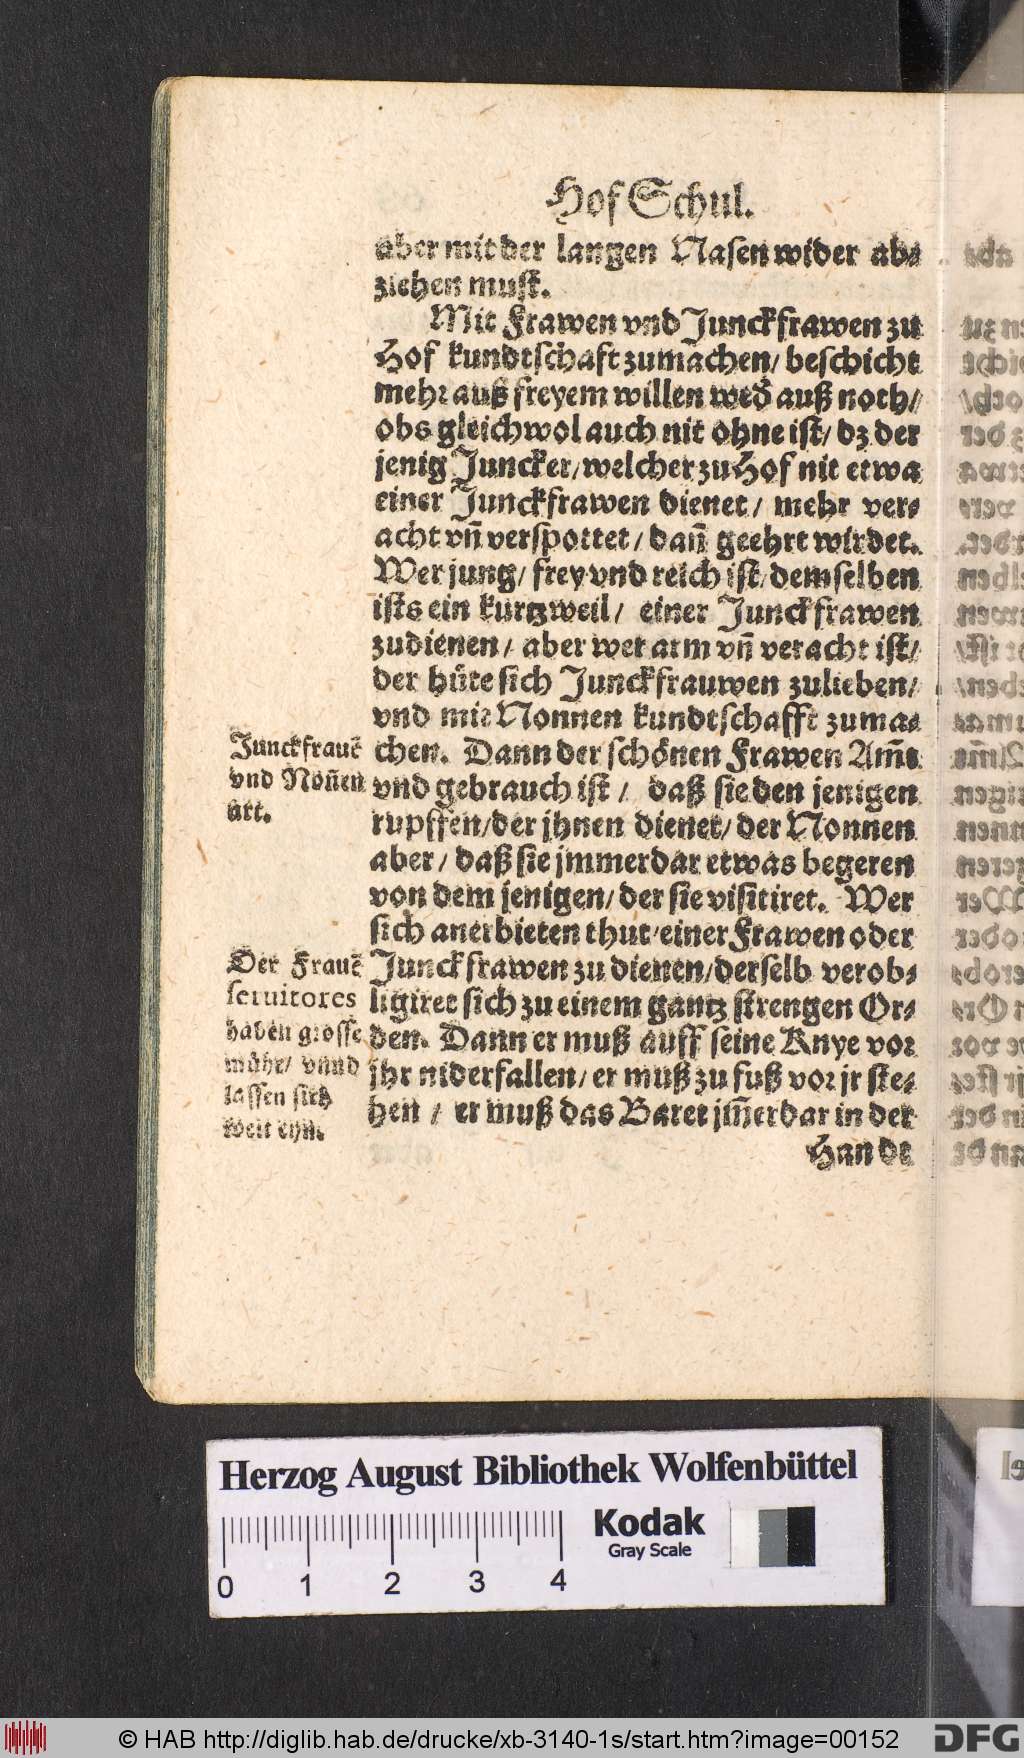 Hof Schul.
aber mit der langen Nasen wider ab⸗
ziehen must.
Mit Frawen vnd Junckfrawen zu
Hof kundtschaft zumachen/ beschicht
mehr auß freyem willen wed̕ auß noth/
obs gleichwol auch nit ohne ist/ dz der
jenig Juncker/ welcher zu Hof nit etwa
einer Junckfrawen dienet/ mehr ver⸗
acht vñ verspottet/ dañ geehrt wirdet.
Wer jung/ frey vnd reich ist/ demselben
ists ein kurtzweil/ einer Junckfrawen
zudienen/ aber wer arm vñ veracht ist/
der hüte sich Junckfrauwen zulieben/
vnd mit Nonnen kundtschafft zuma⸗
Junckfrauẽ
vnd Noñen
art.
chen. Dann der schönen Frawen Am̃t
vnd gebrauch ist/ daß sie den jenigen
rupffen/ der jhnen dienet/ der Nonnen
aber/ daß sie jmmerdar etwas begeren
von dem jenigen/ der sie visitiret. Wer
sich anerbieten thut/ einer Frawen oder
Der Frauẽ
seruitores
haben grosse
mühe/ vnnd
lassen sichs
weit eyn.
Junckfrawen zu dienen/ derselb verob⸗
ligiret sich zu einem gantz strengen Or⸗
den. Dann er muß auff seine Knye vor
jhr niderfallen/ er muß zu fuß vor jr ste⸗
hen/ er muß das Baret jm̃erdar in der
Hande
Herzog August Bibliothek Wolfenbüttel
Kodak
Gray Scale
0 1 2 3 4
© HAB http://diglib.hab.de/drucke/xb-3140-1s/start.htm?image=00152
DFG